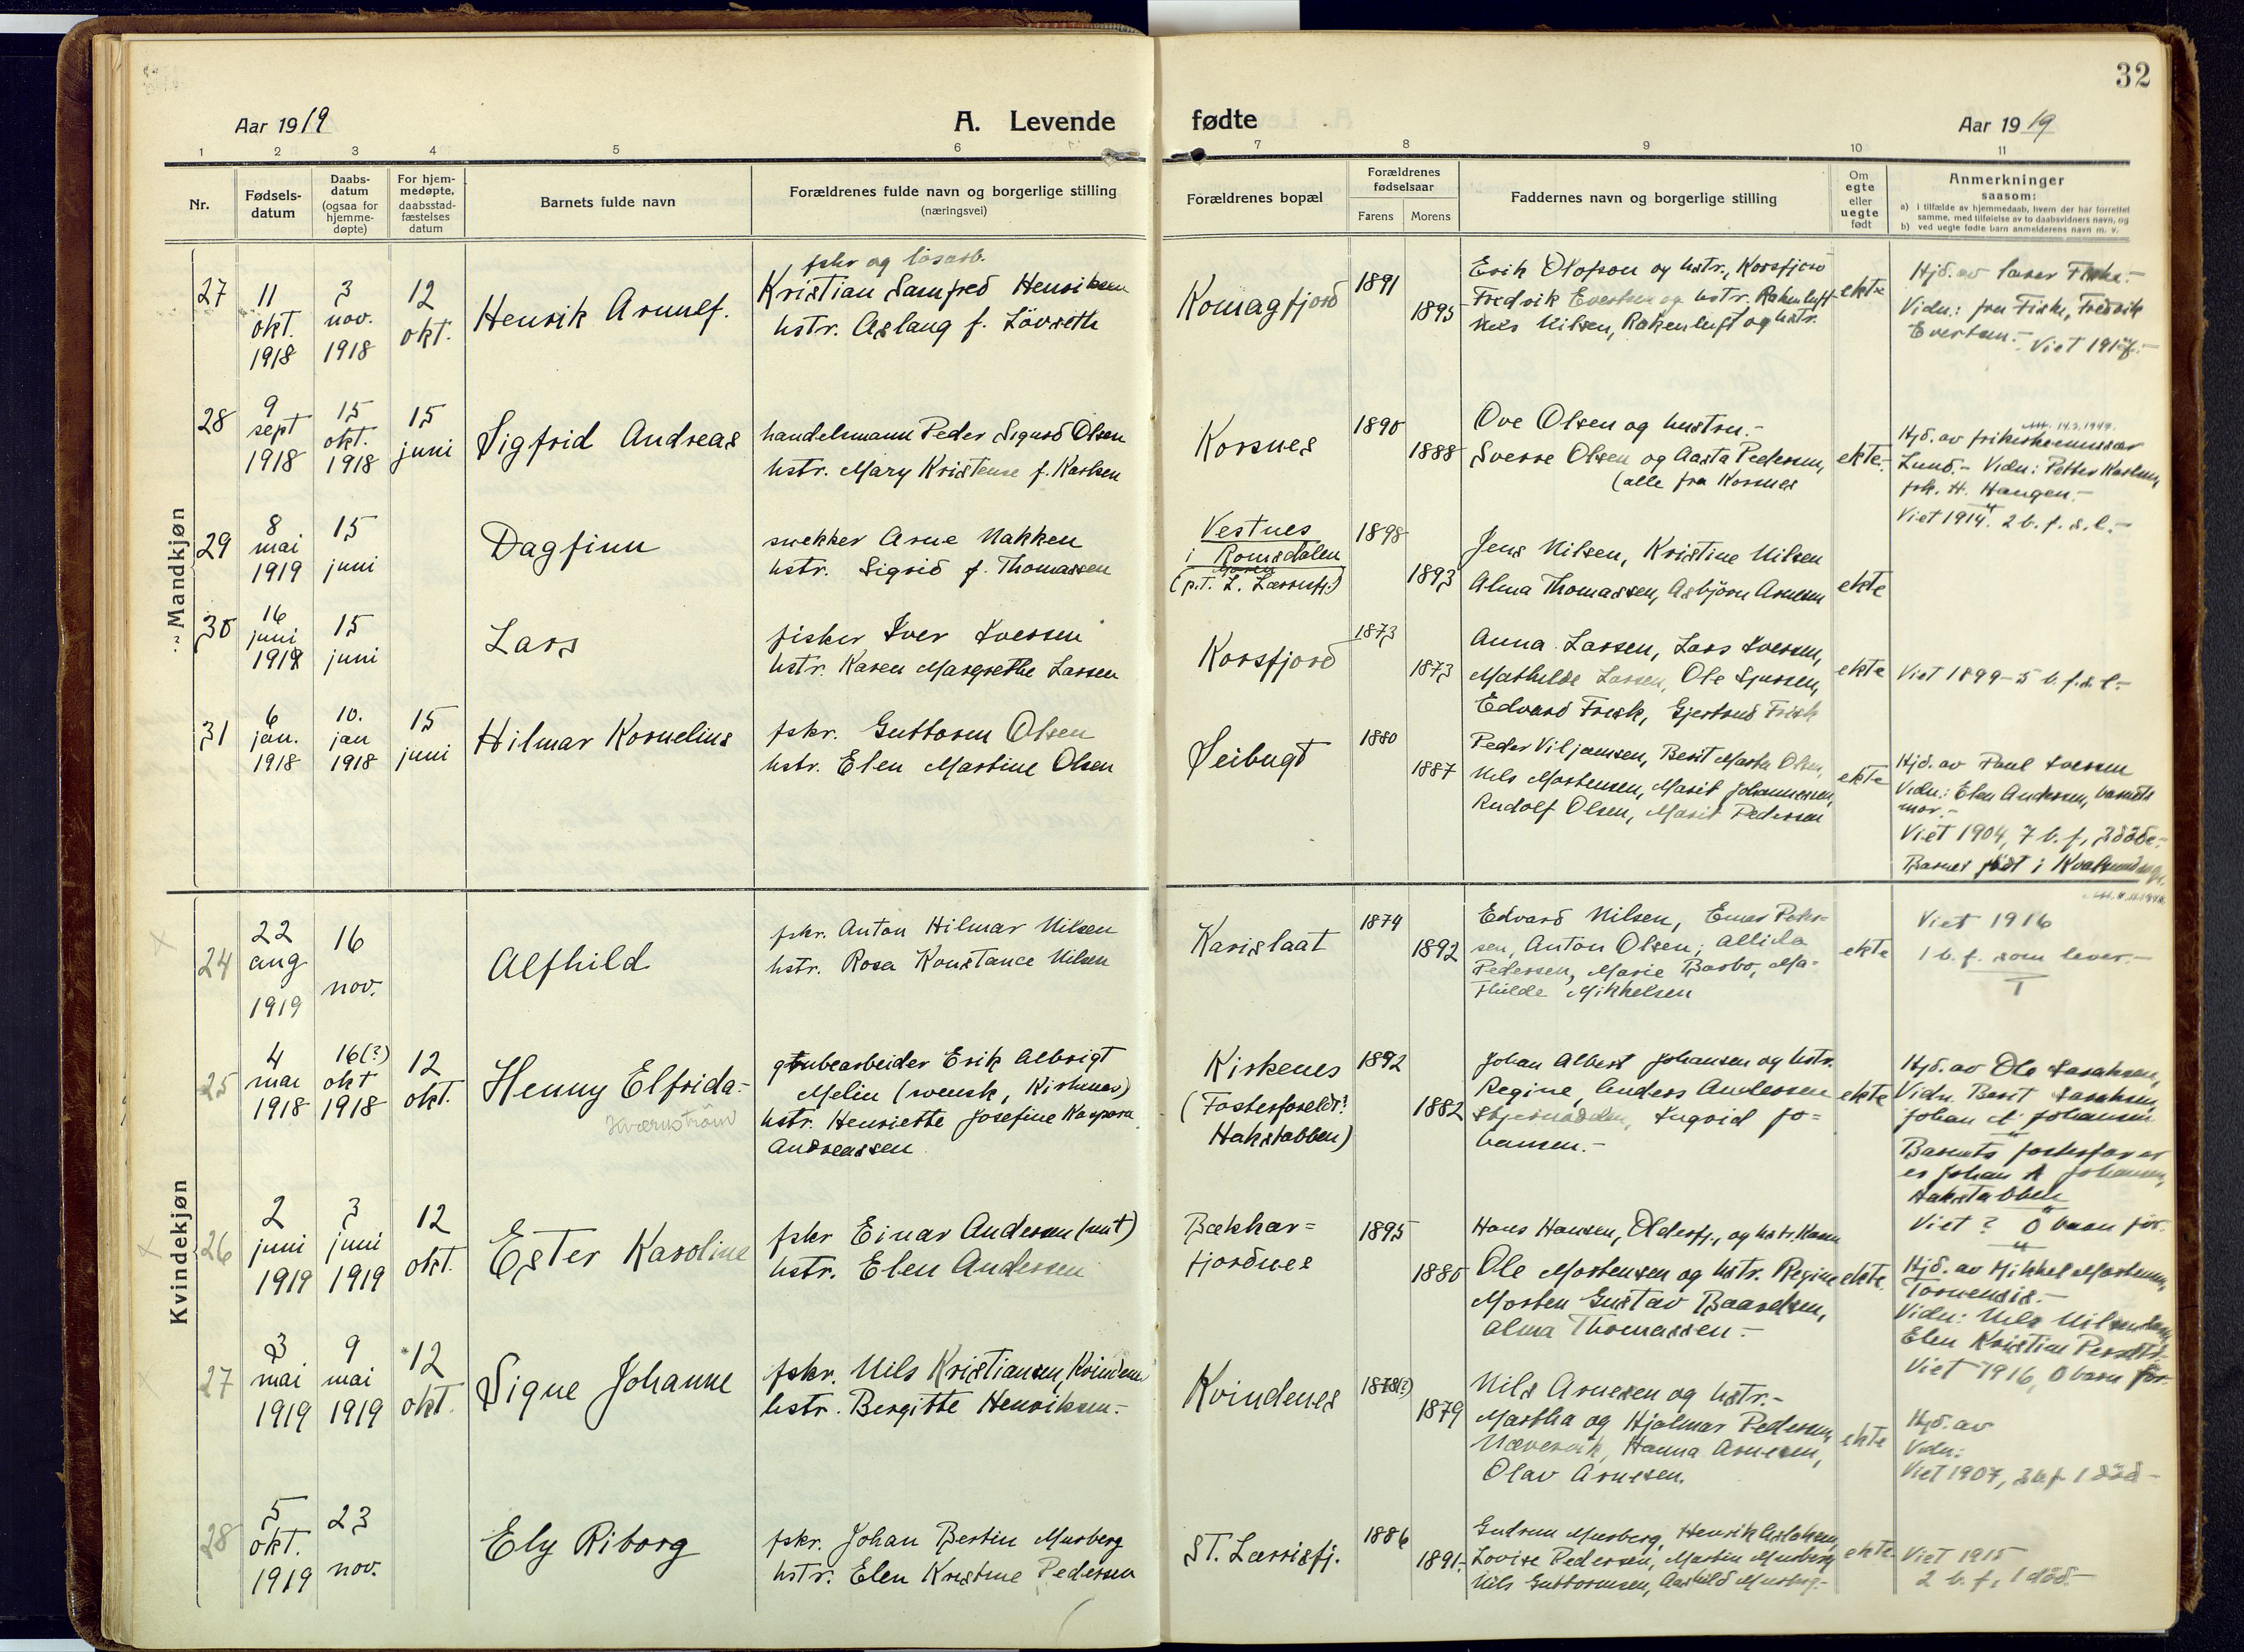 32
Aar 1919
A. Levende
fødte
Aar 1919
1 2 3 4 5 6 7 8 9 10 11
Nr.
Fødsels-
datum
Daabs-
datum
(ogsaa for
hjemme-
døpte)
For hjem-
medøpte,
daabsstad-
fæstelses
datum
Barnets fulde navn
Forældrenes fulde navn og borgerlige stilling
(næringsvei)
Forældrenes bopæl
Forældrenes
fødselsaar
Farens Morens
Faddernes navn og borgerlige stilling
Om
egte
eller
uegte
født
Anmerkninger
saasom:
a) i tilfælde av hjemmedaab, hvem der har forrettet
samme, med tilføielse av to daabsvidners navn, og
b) ved uegte fødte barn anmelderens navn m. v.
Mandkjøn
27
11
okt.
1918
3
nov.
1918
12
okt.
Henrik Arnulf.
fskr og løsarb.
Kristian Samfred Henriksen
hstr. Aslaug f. Lövseth
Komagfjord
1891
1895
Erik Olofson og hstr., Korsfjord
Fredrik Evertsen og hstr. Rakenluft
Nils Nilsen, Rakenluft og hstr.
ekte
Hjd. av lærer Fiske.-
Vidn.: fru Fiske, Fredrik
Evertsen.-
Viet 1917.-
28
9
sept
1918
15
okt.
1918
15
juni
Sigfrid Andreas
handelsmann Peder Sigurd Olsen
hstr. Mary Kristense f. Karlsen
Korsnes
1890
1888
Ove Olsen og hustru.-
Sverre Olsen og Aasta Pedersen,
(alle fra Korsnes
ekte.-
Att. 14.3.1949.
Hjd. av
Lund.- Vidn: Petter Karlsen,
fsk. H. Haugen.-
Viet 1914. 2 b. f. s. l.-
29
8
mai
1919
15
juni
Dagfinn
snekker Arne Nakken
hstr. Sigrid f. Thomassen
Vestnes
i Romsdalen
(p.T. L. Lærrisfj.)
1898
1893
Jens Nilsen, Kristine Nilsen
Alma Thomassen, Asbjørn Arnesen
ekte
30
16
juni
1919
15
juni
Lars
fisker Iver Iversen
hstr. Karen Margrethe Larsen
Korsfjord
1873
1873
Anna Larsen, Lars Iversen,
Mathilde Larsen, Ole Sjursen,
Edvard Frisk, Gjertrud Frisk
ekte
Viet 1899 - 5 b. f. s. l.-
31
6
jan.
1918
10.
jan
1918
15
juni
Hilmar Kornelius
fskr. Guttorm Olsen
hstr. Elen Martine Olsen
Seibugt
1880
1887
Peder Viljamsen, Berit Marta Olsen,
Nils Mortensen, Marit Johannesen,
Rudolf Olsen, Marit Pedersen
ekte
Hjd. av Paul Iversen
Vidn: Elen Andersen, barnets
mor.-
Viet 1904, 7 b. f., 3 döde.-
Barnet født i
Kvindekjøn
24
22
aug
1919
16
nov.
Alfhild
fskr. Anton Hilmar Nilsen
hstr. Rosa Konstance Nilsen
Karislaat
1874
1892
Edvard Nilsen, Emar Peder-
sen, Anton Olsen, Allida
Pedersen, Marie Barbo, Ma-
thilde Mikkelsen
ekte
Viet 1916
1 b. f. som lever.-
25
4
mai
1918
16(?)
okt
1918
12
okt.
Henny Elfrida-
Kværnstrøm
grubearbeider Erik Albrigt
Melin (svensk, Kirkenes)
hstr. Henriette Josefine Kaspara
Andreassen
Kirkenes
(Fosterforeldr:
Hakstabben)
1892
1882
Johan Albert Johansen og hstr.
Regine, Anders Andersen
Stjernodden, Ingvid Jo-
hansen.-
ekte
Hjd. av Ole Isaksen,
Vidn. Berit Isaksen,
Johan A Johansen
Barnets fosterfar er
er Johan A Johansen,
Hakstabben
Viet ? 0 barn før.
26
2
juni
1919
3
juni
1919
12
okt.
Ester Karoline
fskr Einar Andersen
hstr. Elen Andersen
Bækkar-
fjordnes
1895
1880
Hans Hansen, Olderfj., og hstr. Karen
Ole Mortensen og hstr. Regine
Morten Gustav Baardsen,
Alma Thomassen.-
ekte.
Hjd. av Mikkel Mortensen,
Tornensis.-
Vidn: Nils Nilsen
Elen Kristine
Viet 1916, 0 barn før.
27
3
mai
1919
9
mai
1919
12
okt.
Signe Johanne
fskr. Nils Kristiansen, Kvindenes
hstr. Bergitte Henriksen.-
Kvindenes
1878(?)
1879
Nils Arnesen og hstr.-
Martha og Hjalmar Pedersen,
Nævervik, Hanna Arnesen,
Olav Arnesen.
ekte
Hjd. av
Vidn:
Viet 1907, 3 b. f. 1 död-
28
5
okt.
1919
23
nov.
Ely Riborg
fskr. Johan Bertin Murberg
hstr. Elen Kristine Pedersen
ST. Lærrisfj.
1886
1891.
Gudrun Murberg, Henrik Aslaksen,
Lovise Pedersen, Martin Murberg
Nils Guttormsen, Aashild Murberg.-
ekte.
Viet 1915
2 b. f., 1 död.-